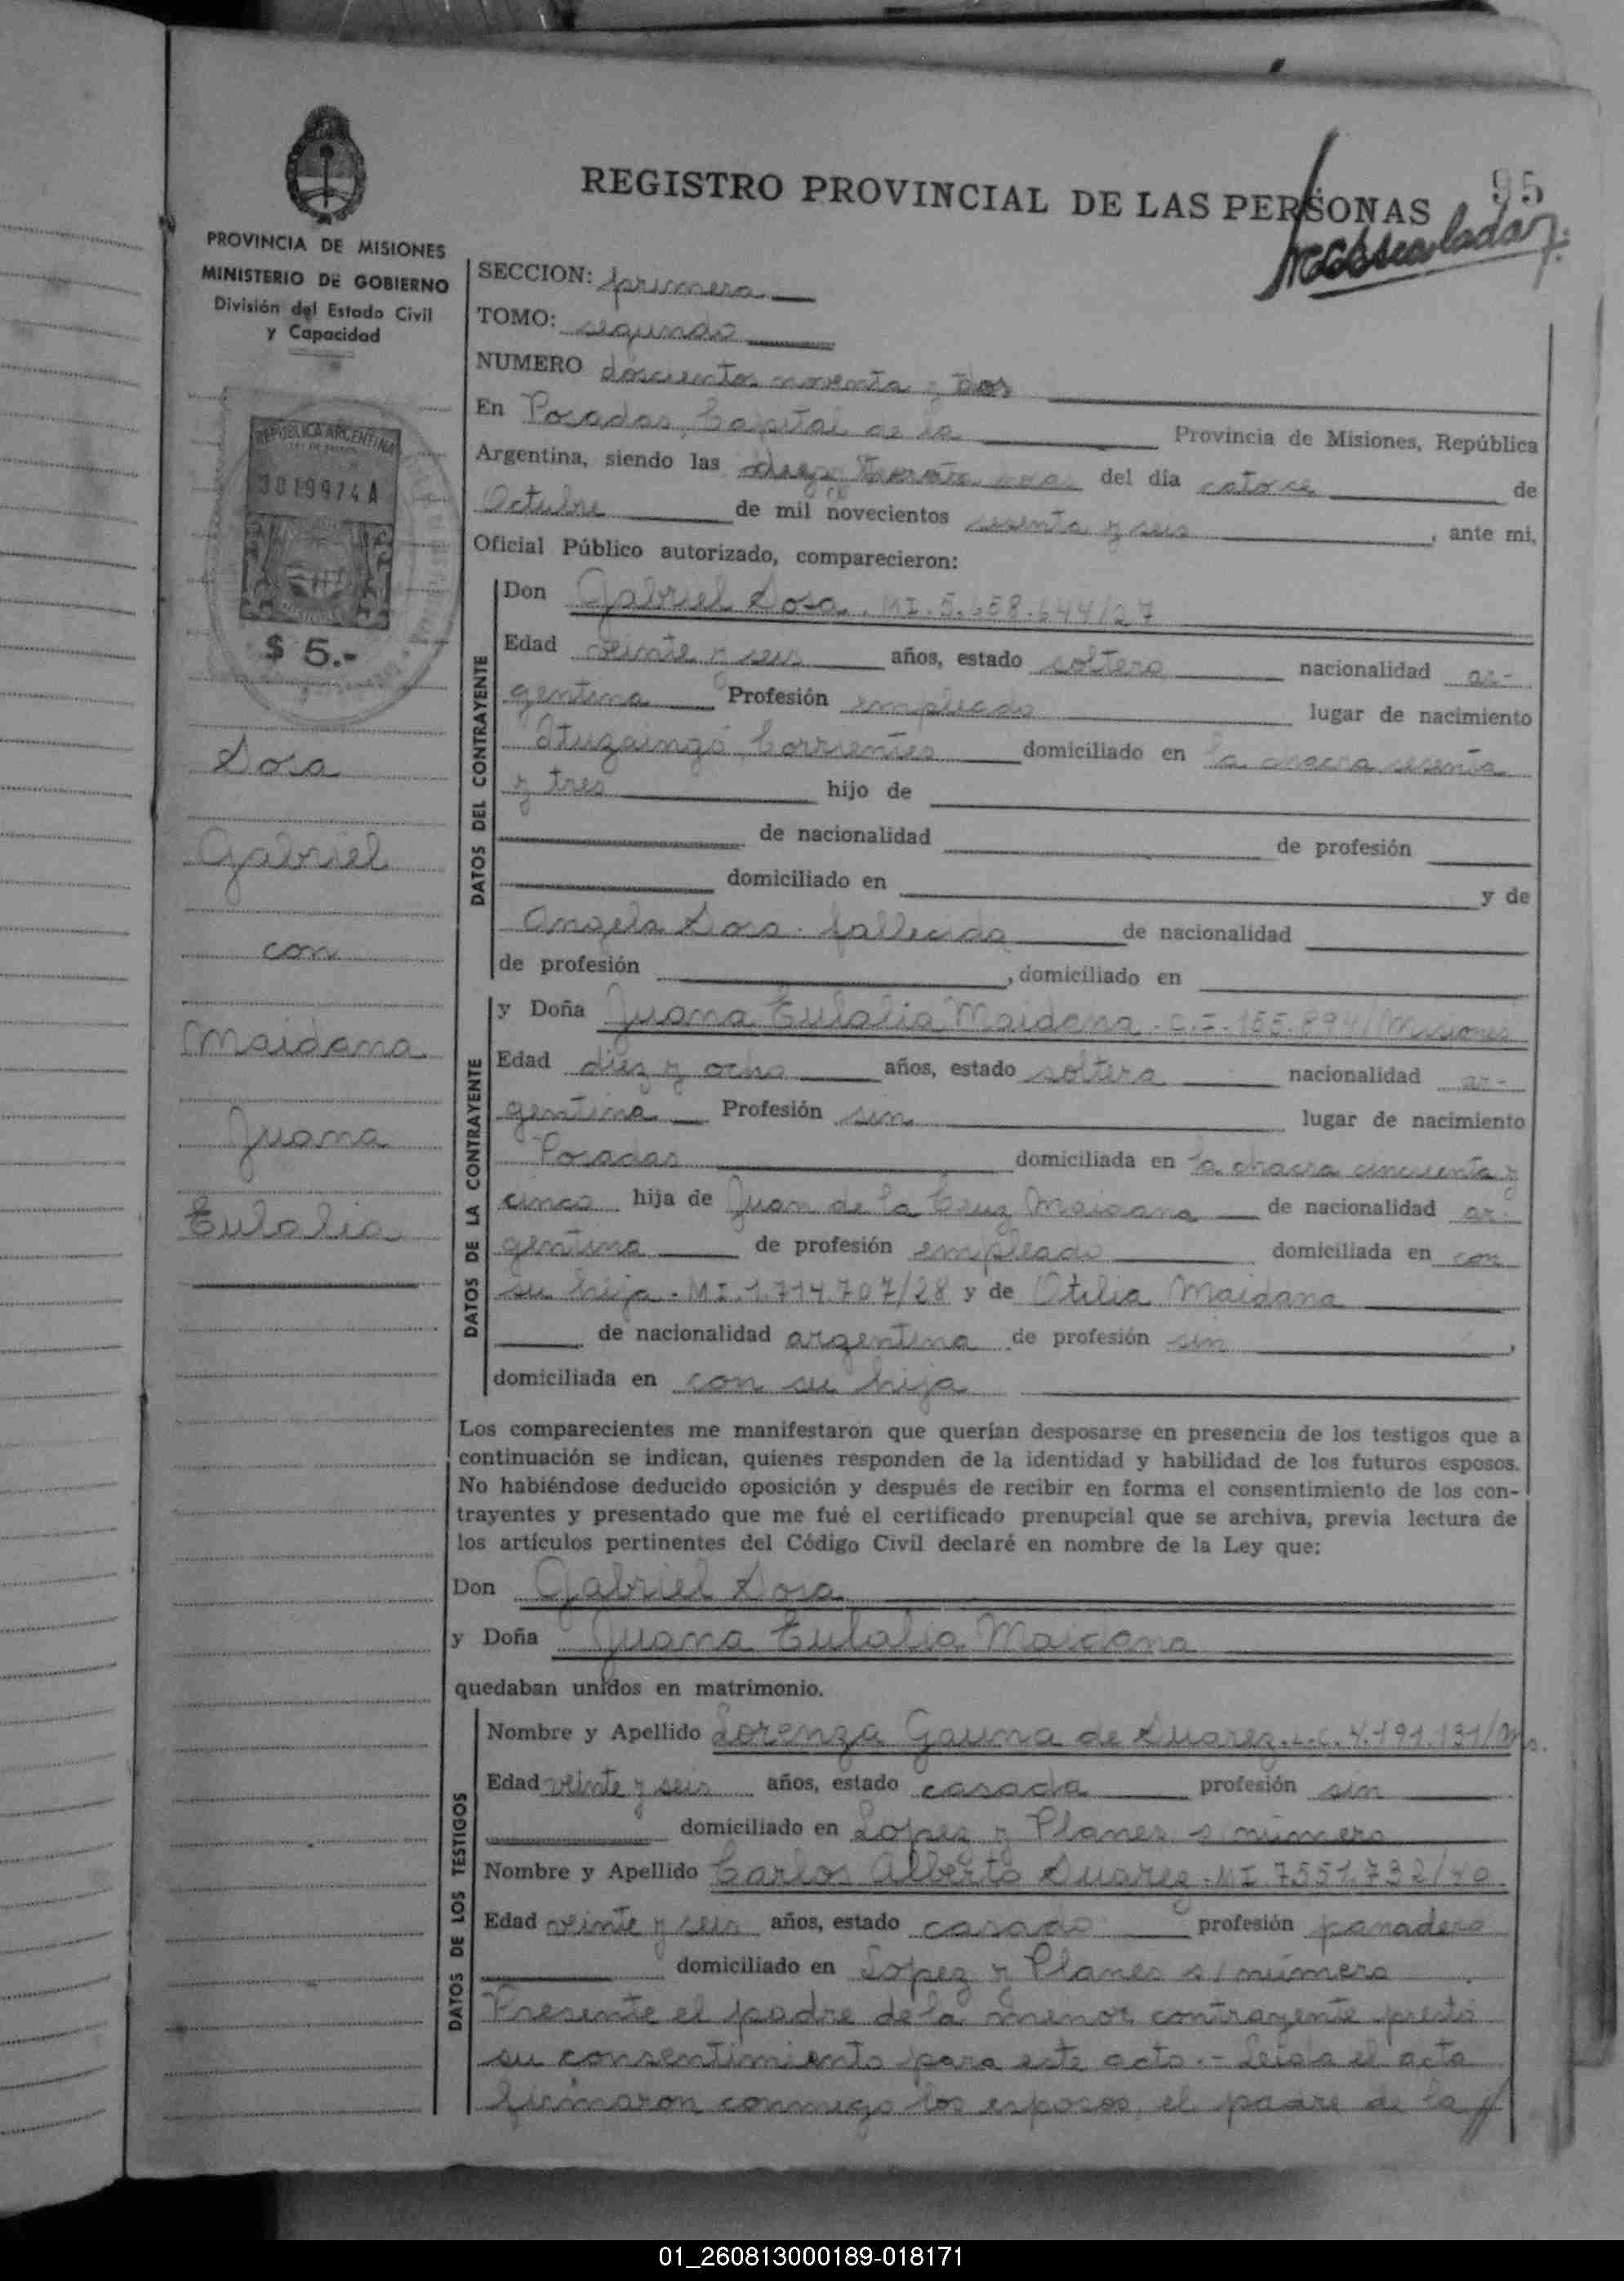 REGISTRO PROVINCIAL DE LAS PERSONAS
95
PROVINCIA DE MISIONES
MINISTERIO DE GOBIERNO
División del Estado Civil
y Capacidad
REPUBLICA ARGENTINA
3019974 A
$ 5.-
Sosa
Gabriel
con
Maidana
Juana
Eulalia
SECCION: primera
TOMO: segundo
NUMERO doscientos noventa y dos
En Posadas, Capital de la Provincia de Misiones, República
Argentina, siendo las diez horas del día catorce de
Octubre de mil novecientos sesenta y seis, ante mi,
Oficial Público autorizado, comparecieron:
DATOS DEL CONTRAYENTE
Don Gabriel Sosa. MI. 5.658.644/27
Edad veinte y seis años, estado soltero nacionalidad ar-
gentina Profesión empleado lugar de nacimiento
Ituzaingó Corrientes domiciliado en la chacra sesenta
y tres hijo de
de nacionalidad de profesión
domiciliado en y de
Angela Sosa. fallecida de nacionalidad
de profesión , domiciliado en
DATOS DE LA CONTRAYENTE
y Doña Juana Eulalia Maidana. C.I. 155.894/Misiones
Edad diez y ocho años, estado soltera nacionalidad ar-
gentina Profesión sin lugar de nacimiento
Posadas domiciliada en la chacra cincuenta y
cinco hija de Juan de la Cruz Maidana de nacionalidad ar-
gentina de profesión empleado domiciliada en con
su hija. MI. 1.714.707/28 y de Otilia Maidana
de nacionalidad argentina de profesión sin ,
domiciliada en con su hija
Los comparecientes me manifestaron que querían desposarse en presencia de los testigos que a
continuación se indican, quienes responden de la identidad y habilidad de los futuros esposos.
No habiéndose deducido oposición y después de recibir en forma el consentimiento de los con-
trayentes y presentado que me fué el certificado prenupcial que se archiva, previa lectura de
los artículos pertinentes del Código Civil declaré en nombre de la Ley que:
Don Gabriel Sosa
y Doña Juana Eulalia Maidana
quedaban unidos en matrimonio.
DATOS DE LOS TESTIGOS
Nombre y Apellido Lorenza Gauna de Suarez. L.C. 4.191.131/Ms.
Edad veinte y seis años, estado casada profesión sin
domiciliado en Lopez y Planes s/número
Nombre y Apellido Carlos Alberto Suarez. MI. 7551.732/40.
Edad veinte y seis años, estado casado profesión panadero
domiciliado en Lopez y Planes s/número
Presente el padre de la menor contrayente prestó
su consentimiento para este acto.- Leida el acta
firmaron conmigo los esposos, el padre de la //
01_260813000189-018171